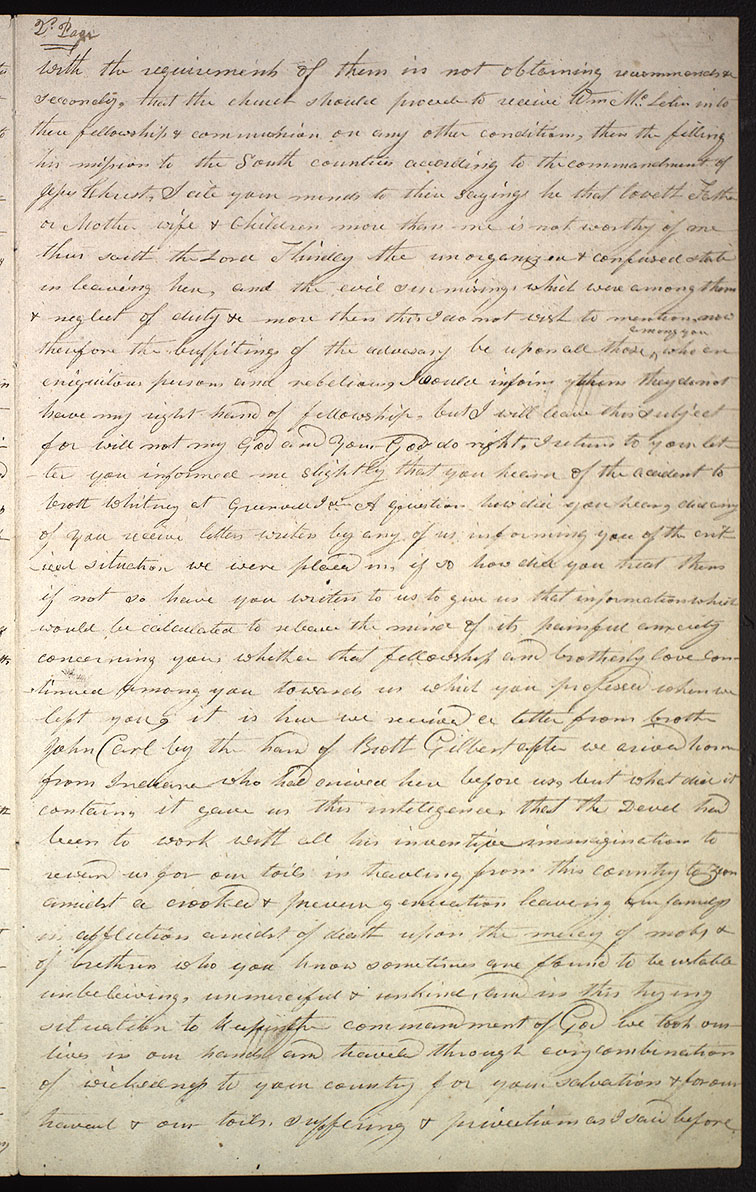 2d Page
with the requirements of them in not obtaining recommends &
secondly, that the church should procede to receive Wm McLelin into
there fellowship & communion on any other condition, then the filling
his mission to the South counties according to the commandment of
Jesus Christ, I cite your minds to this saying he that loveth Father
or Mother wife & Children more than me is not worthy of me
thus saith the Lord Thirdly the unorganized & confused state
in leaveing here, and the evil surmisings which were among them
& neglect of duty &c more then this I do not wish to mention now
therefore the buffitings of the advesary be upon all those among you who are
eniquitous persons and rebelious, I would inform them they do not
have my right hand of fellowship, but I will leave this subject
for will not my God and Your God do right, I return to your let-
ter you informed me slightly that you heard of the accident to
Broth Whitney at Greenvill Ia &c A question how did you hear, did any
of you receive letters writen by any of us, informing you of the crit-
ical situation we were placed in, if so how did you treat them
if not so have you writen to us to give us that information which
would be calculated to releave the mind of its painful anxiety
concerning you, whether that fellowship and brotherly love con-
tinued among you towards us which you professed when we
left you, it is true we received a letter from brother
John Carl by the hand of Broth Gilbert after we arived home
from Indiana who had arived here before us, but what did it
contain, it gave us this inteligence, that the Devel had
been to work with all his inventive immagination to
reward us for our toils in traveling from this country to Zion
amidst a crooked & perverse generation leaving our familys
in affliction amidst of death upon the mercy of mobs &
of brethren who you know sometimes are found to be unstable
unbeleiving, unmerciful & unkind, and in this trying
situation to keep the commandment of God we took our
lives in our hands and traveled through evry combination
of wickedness to your country for your salvation & for our
travail & our toils, suffering & privations as I said before